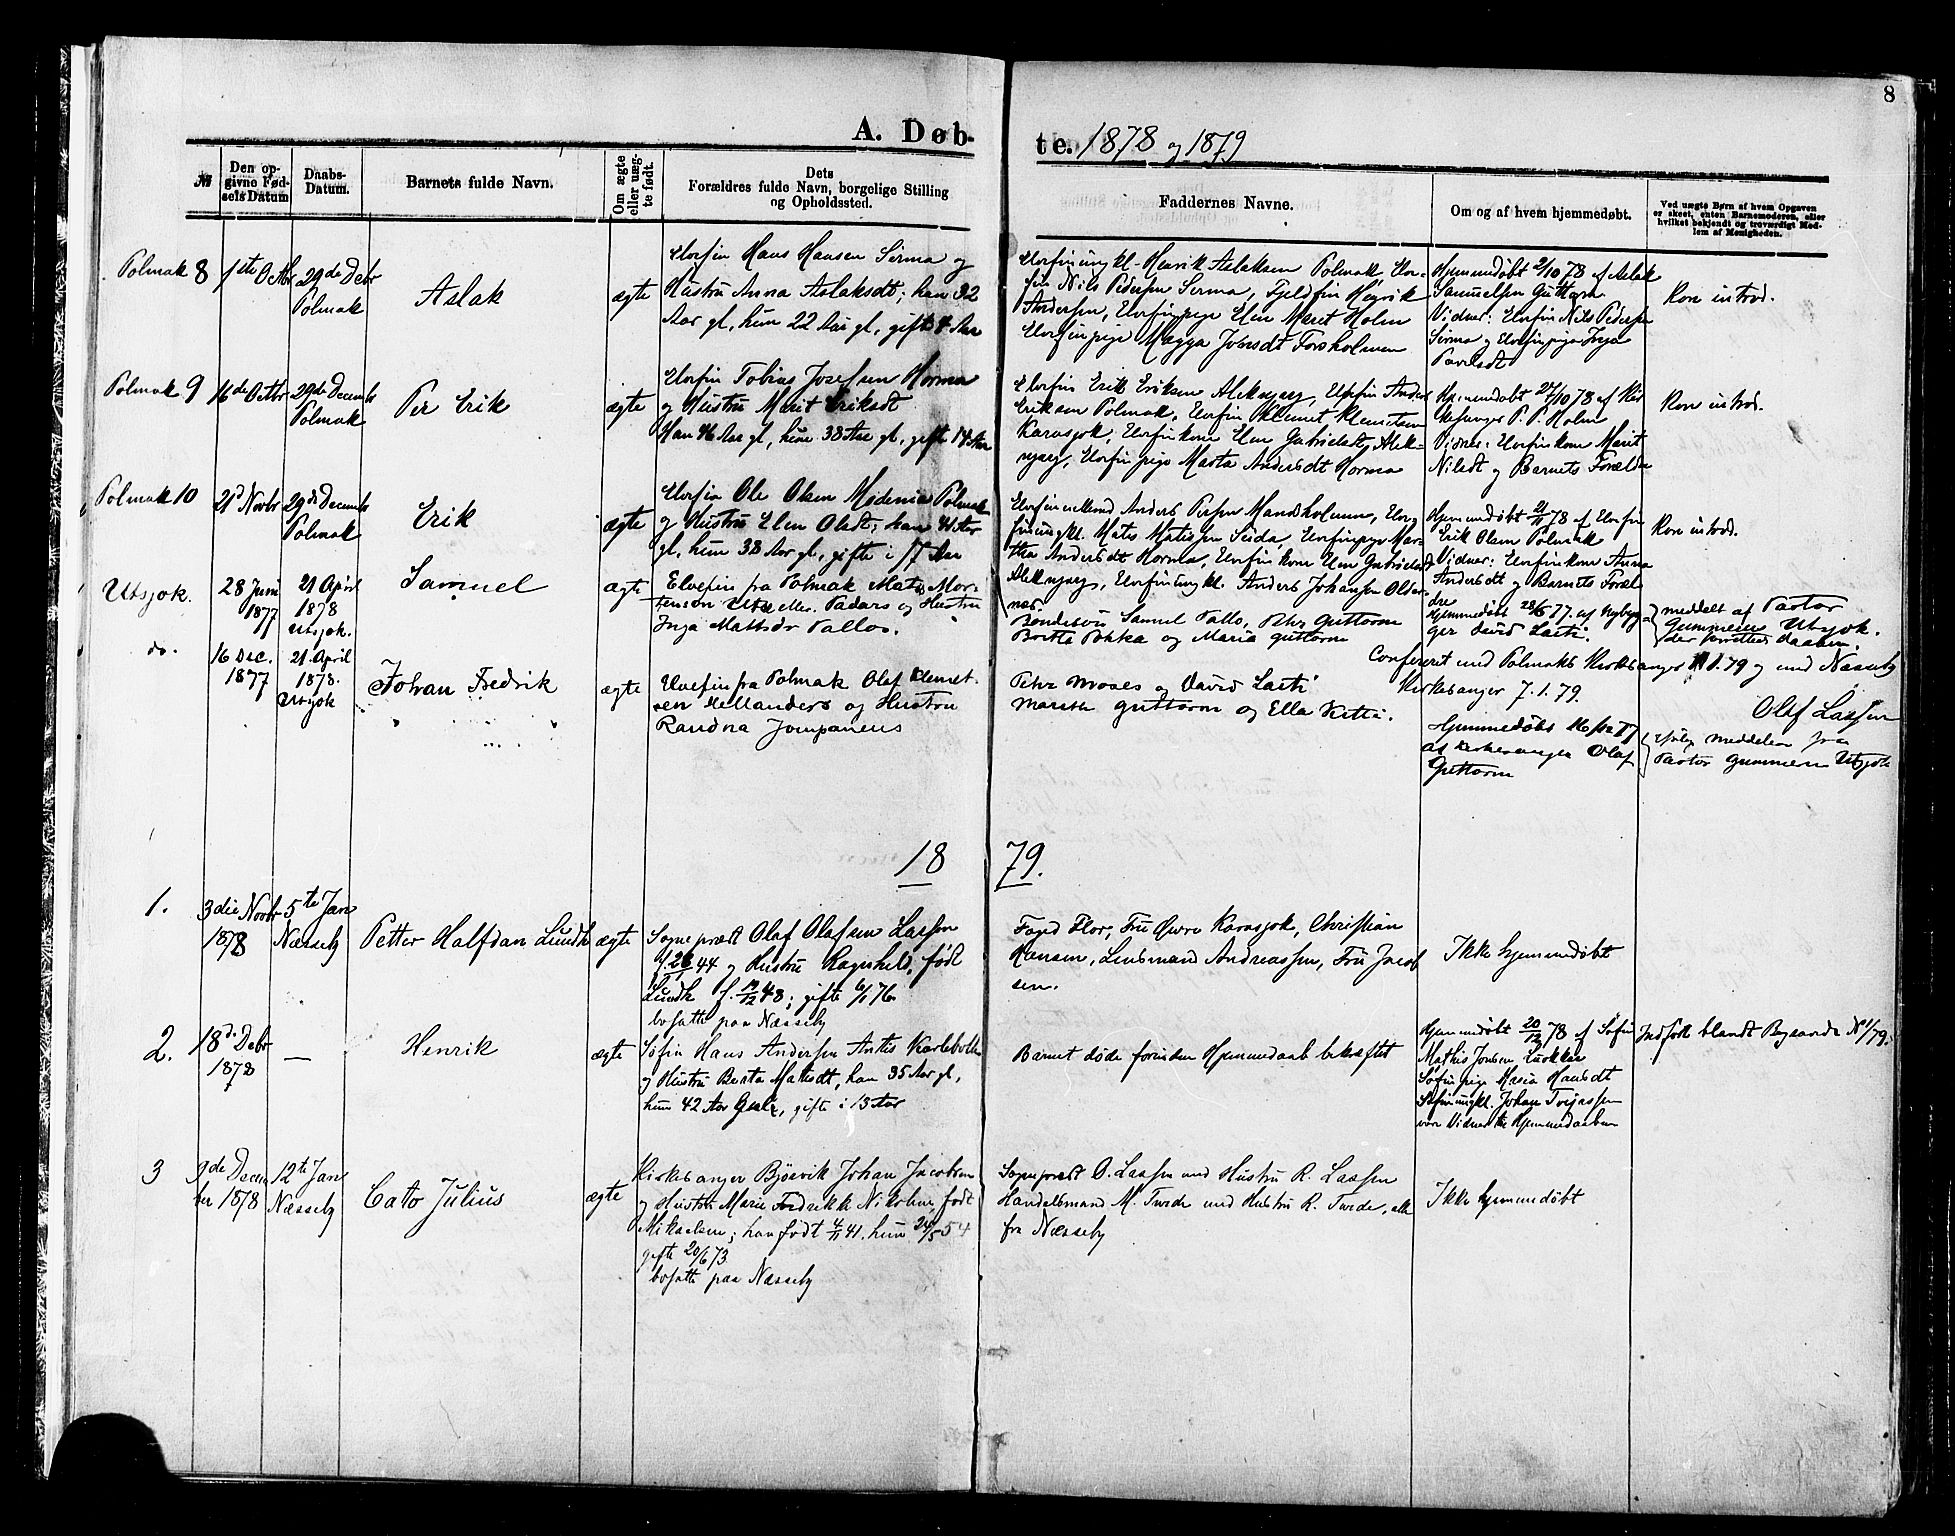 8
A. Døbte. 1878 og 1879
№
Den opgivne Fødsels Datum
Daabs-Datum.
Barnets fulde Navn.
Om ægte eller uægte født.
Dets Forældres fulde Navn, borgelige Stilling og Opholdssted.
Faddernes Navne.
Om og af hvem hjemmedøbt.
Ved uægte Børn af hvem Opgaven er skeet, enten Barnemoderen, eller hvilket bekjendt og troværdigt Medlem af Menigheden.
Polmak 8
1ste Octbr
29de Debr
Polmak
Aslak
ægte
Elvfin Hans Hansen Sirma og
Hustru Anna Aslaksdt; han 32
Aar gl., hun 22 Aar gl., gifte 4 Aar
Elvfinungkl. Henrik Aslaksen Polmak, Elv-
fin Nils Pedersen Serma, Fjeldfin Henrik
Andersen, Elvfinpige Elen Marit Holm
Elvfinpige Magga Johnsdt Forsholmen
Hjemmedøbt 2/10 78 af Aslak
Samuelsen Guttorm
Vidner: Elvfin Nils Pedersen
Sirma og Elvfinpige Inga
Paulsdt
Kon introd.
Polmak 9
16de Octbr
29de Decemb
Polmak
Per Erik
ægte
Elvfin Tobias Josefsen Horma
og Hustru Marit Eriksdt
Han 46 Aar gl., hun 38 Aar gl., gifte 14 Aar
Elvfin Erik Eriksen Aleknjarg, Elvfin Anders
Eriksen Polmak, Elvfin Klemet Klemetsen
Karasjok, Elvfinkone Elen Gabrielsdt Alek-
njarg, Elvfinpige Marta Andersdt Horma
Hjemmedøbt 27/10 78 af Kir
kesanger P. P. Holm
Vidner: Elvfinkone Marit
Nilsdt og Barnets Forældre
Kon introd.
Polmak 10
21de Novbr
29de Decemb
Polmak
Erik
ægte
Elvfin Ole Olsen Polmak
og Hustru Elen Olsdt; han 41 Aar
gl., hun 38 Aar gl., gifte i 17 Aar
Elvfinenkemd Anders Persen Mandsholmen, Elv-
finungkl. Mats Matissen Seida, Elvfinpige Mar-
tha Andersdt Horma, Elvfinkone Elen Gabrielsdt
Aleknjarg, Elvfinungkl. Anders Johansen Older
næs.
Hjemmedøbt 21/11 78 af Elvfin
Erik Olsen Polmak
Vidner: Elvfinkone Anna
Andersdt og Barnets Foræl-
dre
Kon introd.
Utsjok.
28 Juni
1877
21 April
1878
Utsjok.
Samuel
ægte
Elvefin fra Polmak Mats Mor-
tenson eller Padars og Hustru
Inga Mattsdr Pallos.
Bondesøn Samuel Pallo, Pehr Guttorm
Britta Pokka og Maria Guttorm
Hjemmedøbt 28/6 77. af Nybyg-
ger David Lasti.
meddelt af Pastor
Gummerus Utsjok.
der forrettede daaben.
do.
16 Dec.
1877
21 April
1878.
Utsjok
Johan Fredrik
ægte
Elvefin fra Polmak Olaf Klemet-
sen Hellanders og Hustru
Randna Jompanens
Pehr Moses og David Lasti
Marith Guttorm og Ella Kitti.
Confereret med Polmaks Kirkesanger 1.79 og med Næsseby
Kirkesanger 7.1.79.
Olaf Lassen
Hjemmedøbt 16 Dec 77
af Kirkesanger Olaf
Guttorm
ifølge meddelelse fra
Pastor Gummerus Utsjok
1879.
1.
3die Novbr
1878
5te Jan
Næsseby
Petter Halfdan Lundh
ægte
Sognepræst Olaf Olafsen Lassen
f. 44 og Hustru Ragnhild, født
Lundh f. 19/12 48; gifte 6/1 76
bosatte paa Næsseby
Foged Flor, Fru Karasjok, Christian
Hansen, Lensmand Andreassen, Fru Jacob
sen.
Ikke hjemmedøbt
2.
18de Debr
1878
—
Henrik
ægte
Søfin Hans Andersen Anttis Karlebotn
og Hustru Berta Matisdt, han 35 Aar gl,
hun 42 Aar Gml, gifte i 13 Aar
Barnet døde forinden Hjemmedaab bekræftet
Hjemmedøbt 20/12 78 af Søfin
Mathis Jonsen Lukkar
Søfinpige Maria Hansdt
Søfinungkl. Johan
vare Vidner til Hjemmedaaben
Indført blandt Begravede № 1/79.
3
9de Decem
ber 1878
12te Jan
Næsseby
Catto Julius
ægte
Kirkesanger Bjørvik Johan Jacobsen
og Hustru Marie Fredrikke Nikoline, født
Mikaelsen; han født 4/11 41, hun 24/5 54
gifte 20/6 73
bosatte paa Næsseby
Sognepræst O. Lassen med Hustru R. Lassen
Handelsmand M. Tvede med Hustru R. Tvede, alle
fra Næsseby
Ikke hjemmedøbt